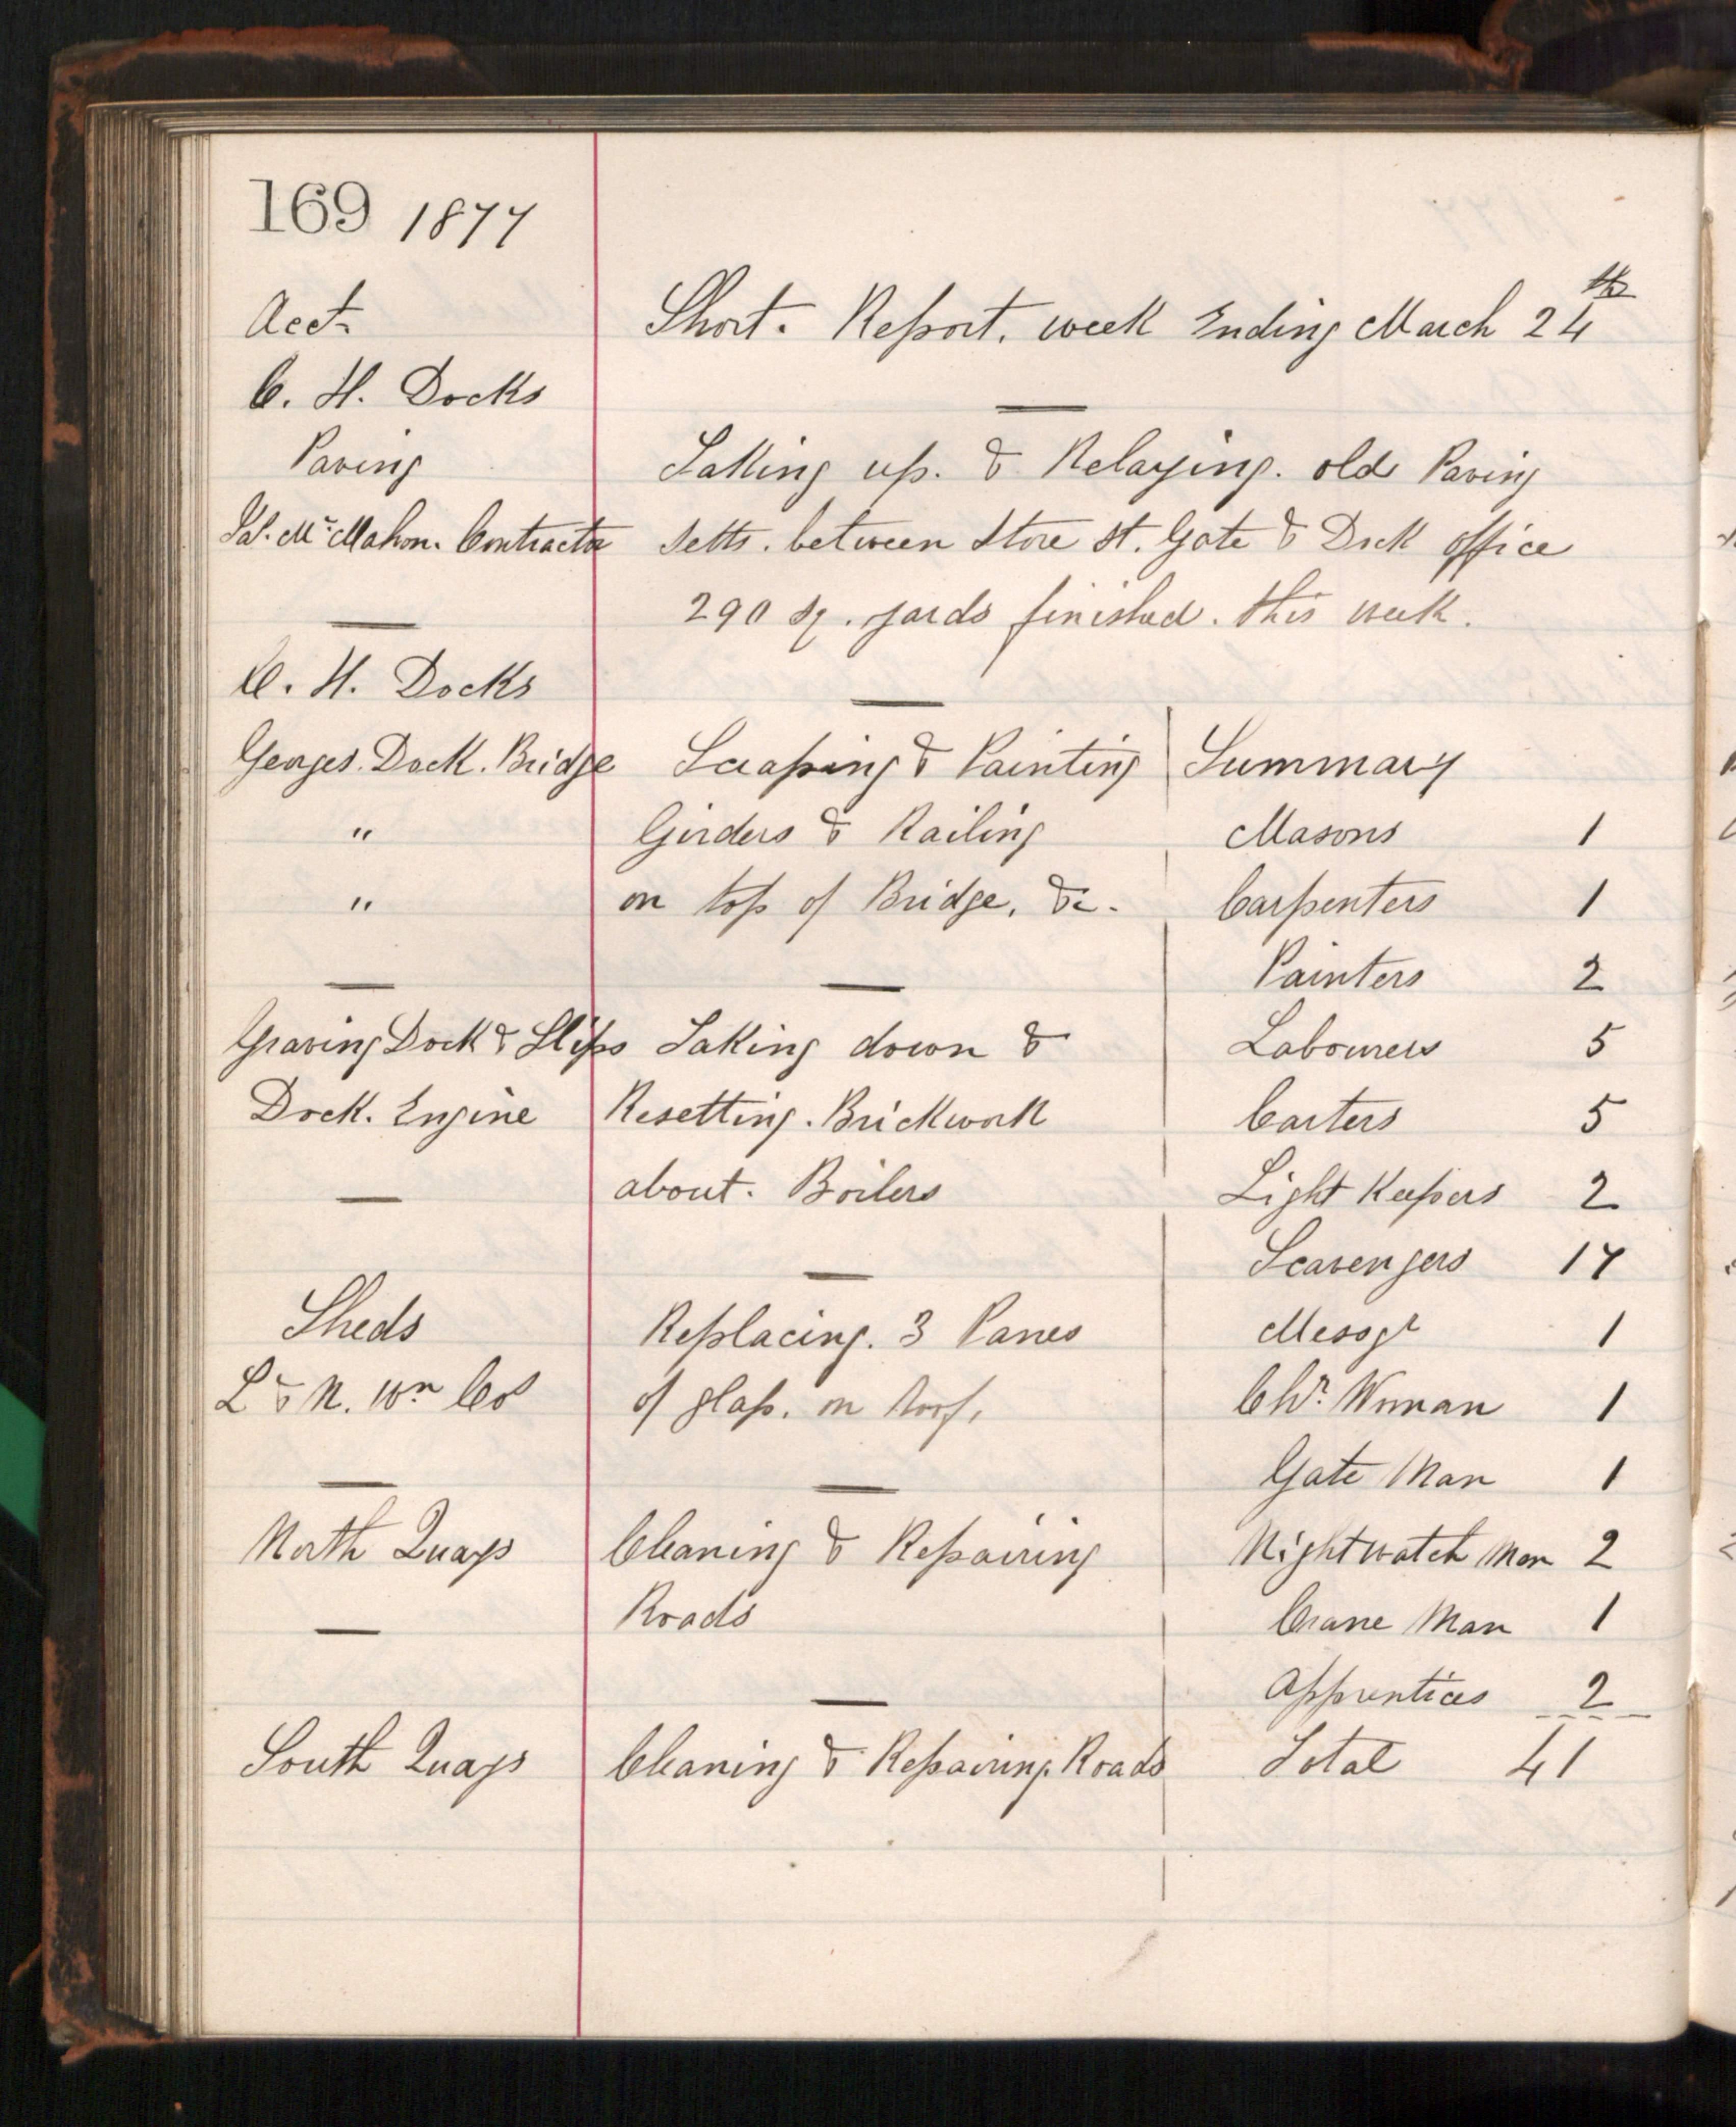 169 1877
Acct. Short. Report. week Ending March 24th
C. H. Docks
Paving Taking up. & Relaying. old Paving
Jas. Mc Mahon. Contractor Setts. between Store St. Gate & Dock office
290 sq. yards finished. this week.
C. H. Docks
Georges. Dock. Bridge Scraping & Painting Summary
" Girders & Railing Masons 1
" on top of Bridge, &c. Carpenters 1
Painters 2
Graving Dock & Slips Taking down & Labourers 5
Dock. Engine Resetting. Brickwork Carters 5
about. Boilers Light Keepers 2
Scavengers 17
Sheds Replacing. 3 Panes Messgr 1
L & N. Wn Cos of glass. on Roof. Chr. Woman 1
Gate Man 1
North Quays Cleaning & Repairing Nightwatch Men 2
Roads Crane Man 1
Apprentices 2
South Quays Cleaning & Repairing Roads Total 41